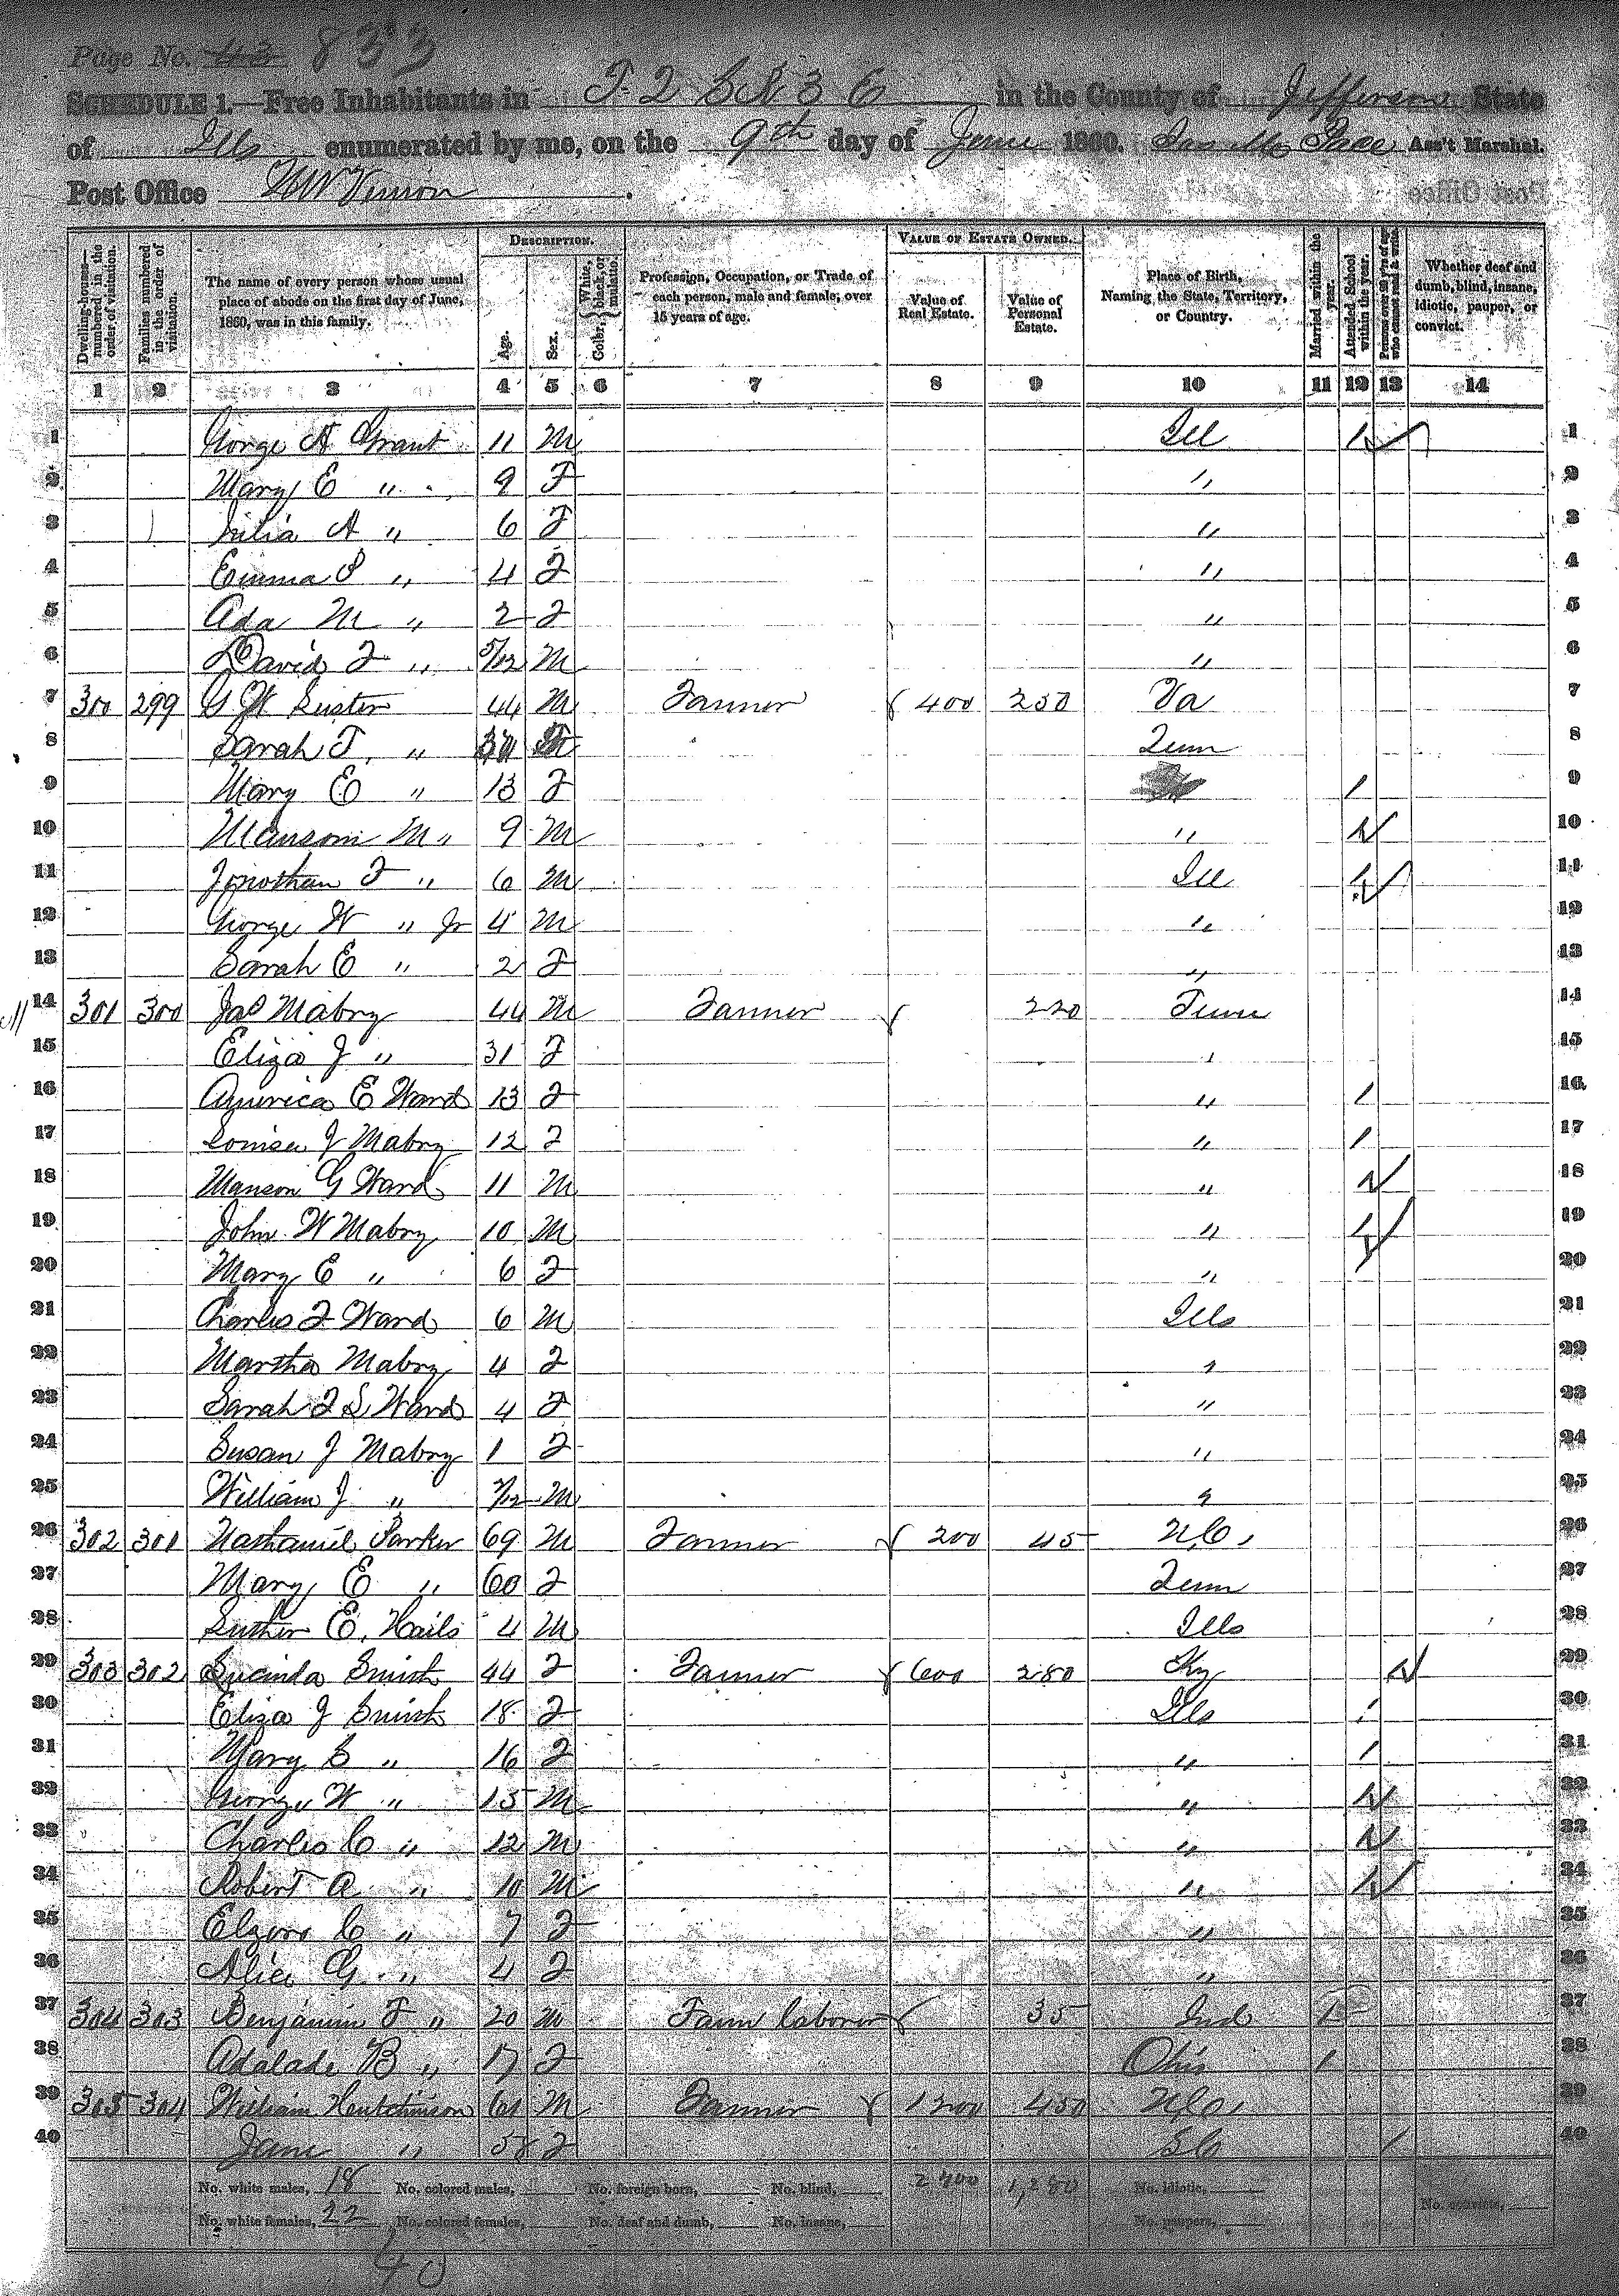 Page No. 43 833
SCHEDULE 1.—Free Inhabitants in T 2 S R 3 E in the County of Jefferson State
of Ills enumerated by me, on the 9th day of June 1860. Pace Ass't Marshal.
Post Office Mt Vernon.
Dwelling-houses—numbered in the order of visitation.
Families numbered in the order of visitation.
The name of every person whose usual place of abode on the first day of June, 1860, was in this family.
DESCRIPTION.
Age.
Sex.
Color, { White, black, or mulatto.
Profession, Occupation, or Trade of each person, male and female, over 15 years of age.
VALUE OF ESTATE OWNED.
Value of Real Estate.
Value of Personal Estate.
Place of Birth, Naming the State, Territory, or Country.
Married within the year.
Attended School within the year.
Persons over 20 y'rs of age who cannot read & write.
Whether deaf and dumb, blind, insane, idiotic, pauper, or convict.
1 2 3 4 5 6 7 8 9 10 11 12 13 14
1 George A Grant 11 M Ill 1 1
2 Mary E " 9 F " 2
3 Julia A " 6 F " 3
4 Emma " 4 F " 4
5 Ada M " 2 F " 5
6 David F " 5/12 M " 6
7 300 299 G W Luster 44 M Farmer 400 250 Va 7
8 Sarah T. " F Tenn 8
9 Mary E " 13 F 1 9
10 Manson M " 9 M " 1 10
11 Jonothan F " 6 M Ill 1 11
12 George W " Jr 4 M " 12
13 Sarah E " 2 F " 13
14 301 300 Jas Mabry 44 M Farmer 220 Tenn 14
15 Eliza J " 31 F " 15
16 America E Ward 13 F " 1 16
17 Louisa J Mabry 12 F " 1 17
18 Manson G Ward 11 M " 1 18
19 John W Mabry 10 M " 1 19
20 Mary E " 6 F " 20
21 Charles F Ward 6 M Ills 21
22 Martha Mabry 4 F " 22
23 Sarah F S Ward 4 F " 23
24 Susan J Mabry 1 F " 24
25 William J " /12 M " 25
26 302 301 Nathaniel Parker 69 M Farmer 200 45 N.C. 26
27 Mary E " 60 F Tenn 27
28 Luther E. Hails 4 M Ills 28
29 303 302 Lucinda Smith 44 F Farmer 600 280 Ky 1 29
30 Eliza J Smith 18 F Ills 1 30
31 Mary S " 16 F " 1 31
32 George W " 15 M " 1 32
33 Charles C " 12 M " 1 33
34 Robert A " 10 M " 1 34
35 C " 7 F " 35
36 Alice G " 4 F " 36
37 304 303 Benjamin F " 20 M Farm laborer 35 Ind 1 37
38 Adalade B " 17 F Ohio 1 38
39 305 304 William Hutchinson 61 M Farmer 1200 450 N.C. 39
40 Jane " 58 F S C 1 40
No. white males, 18 No. colored males, No. foreign born, No. blind, 2400 1,280 No. idiotic,
No. white females, 22 No. colored females, No. deaf and dumb, No. insane, No. paupers, No. convicts,
40